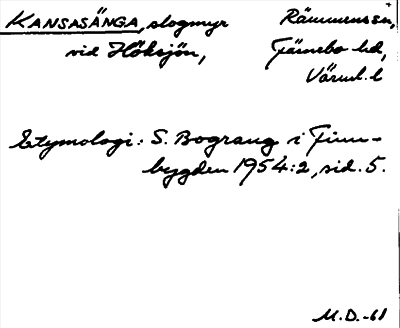 KANSASÄNGA, slogmyr
vid Höksjön,
Rämmens sn,
Färnebo hd,
Värml. l
Etymologi: S. Bograng i Finn-
bygden 1954:2, sid. 5.
M.D.-61